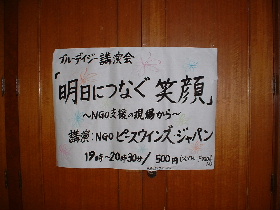 ブルーデイジー講演会
「明日につなぐ笑顔」
～NGO支援の現場から～
講演:NGOピースウィンズ・ジャパン
19時～20時30分/500円